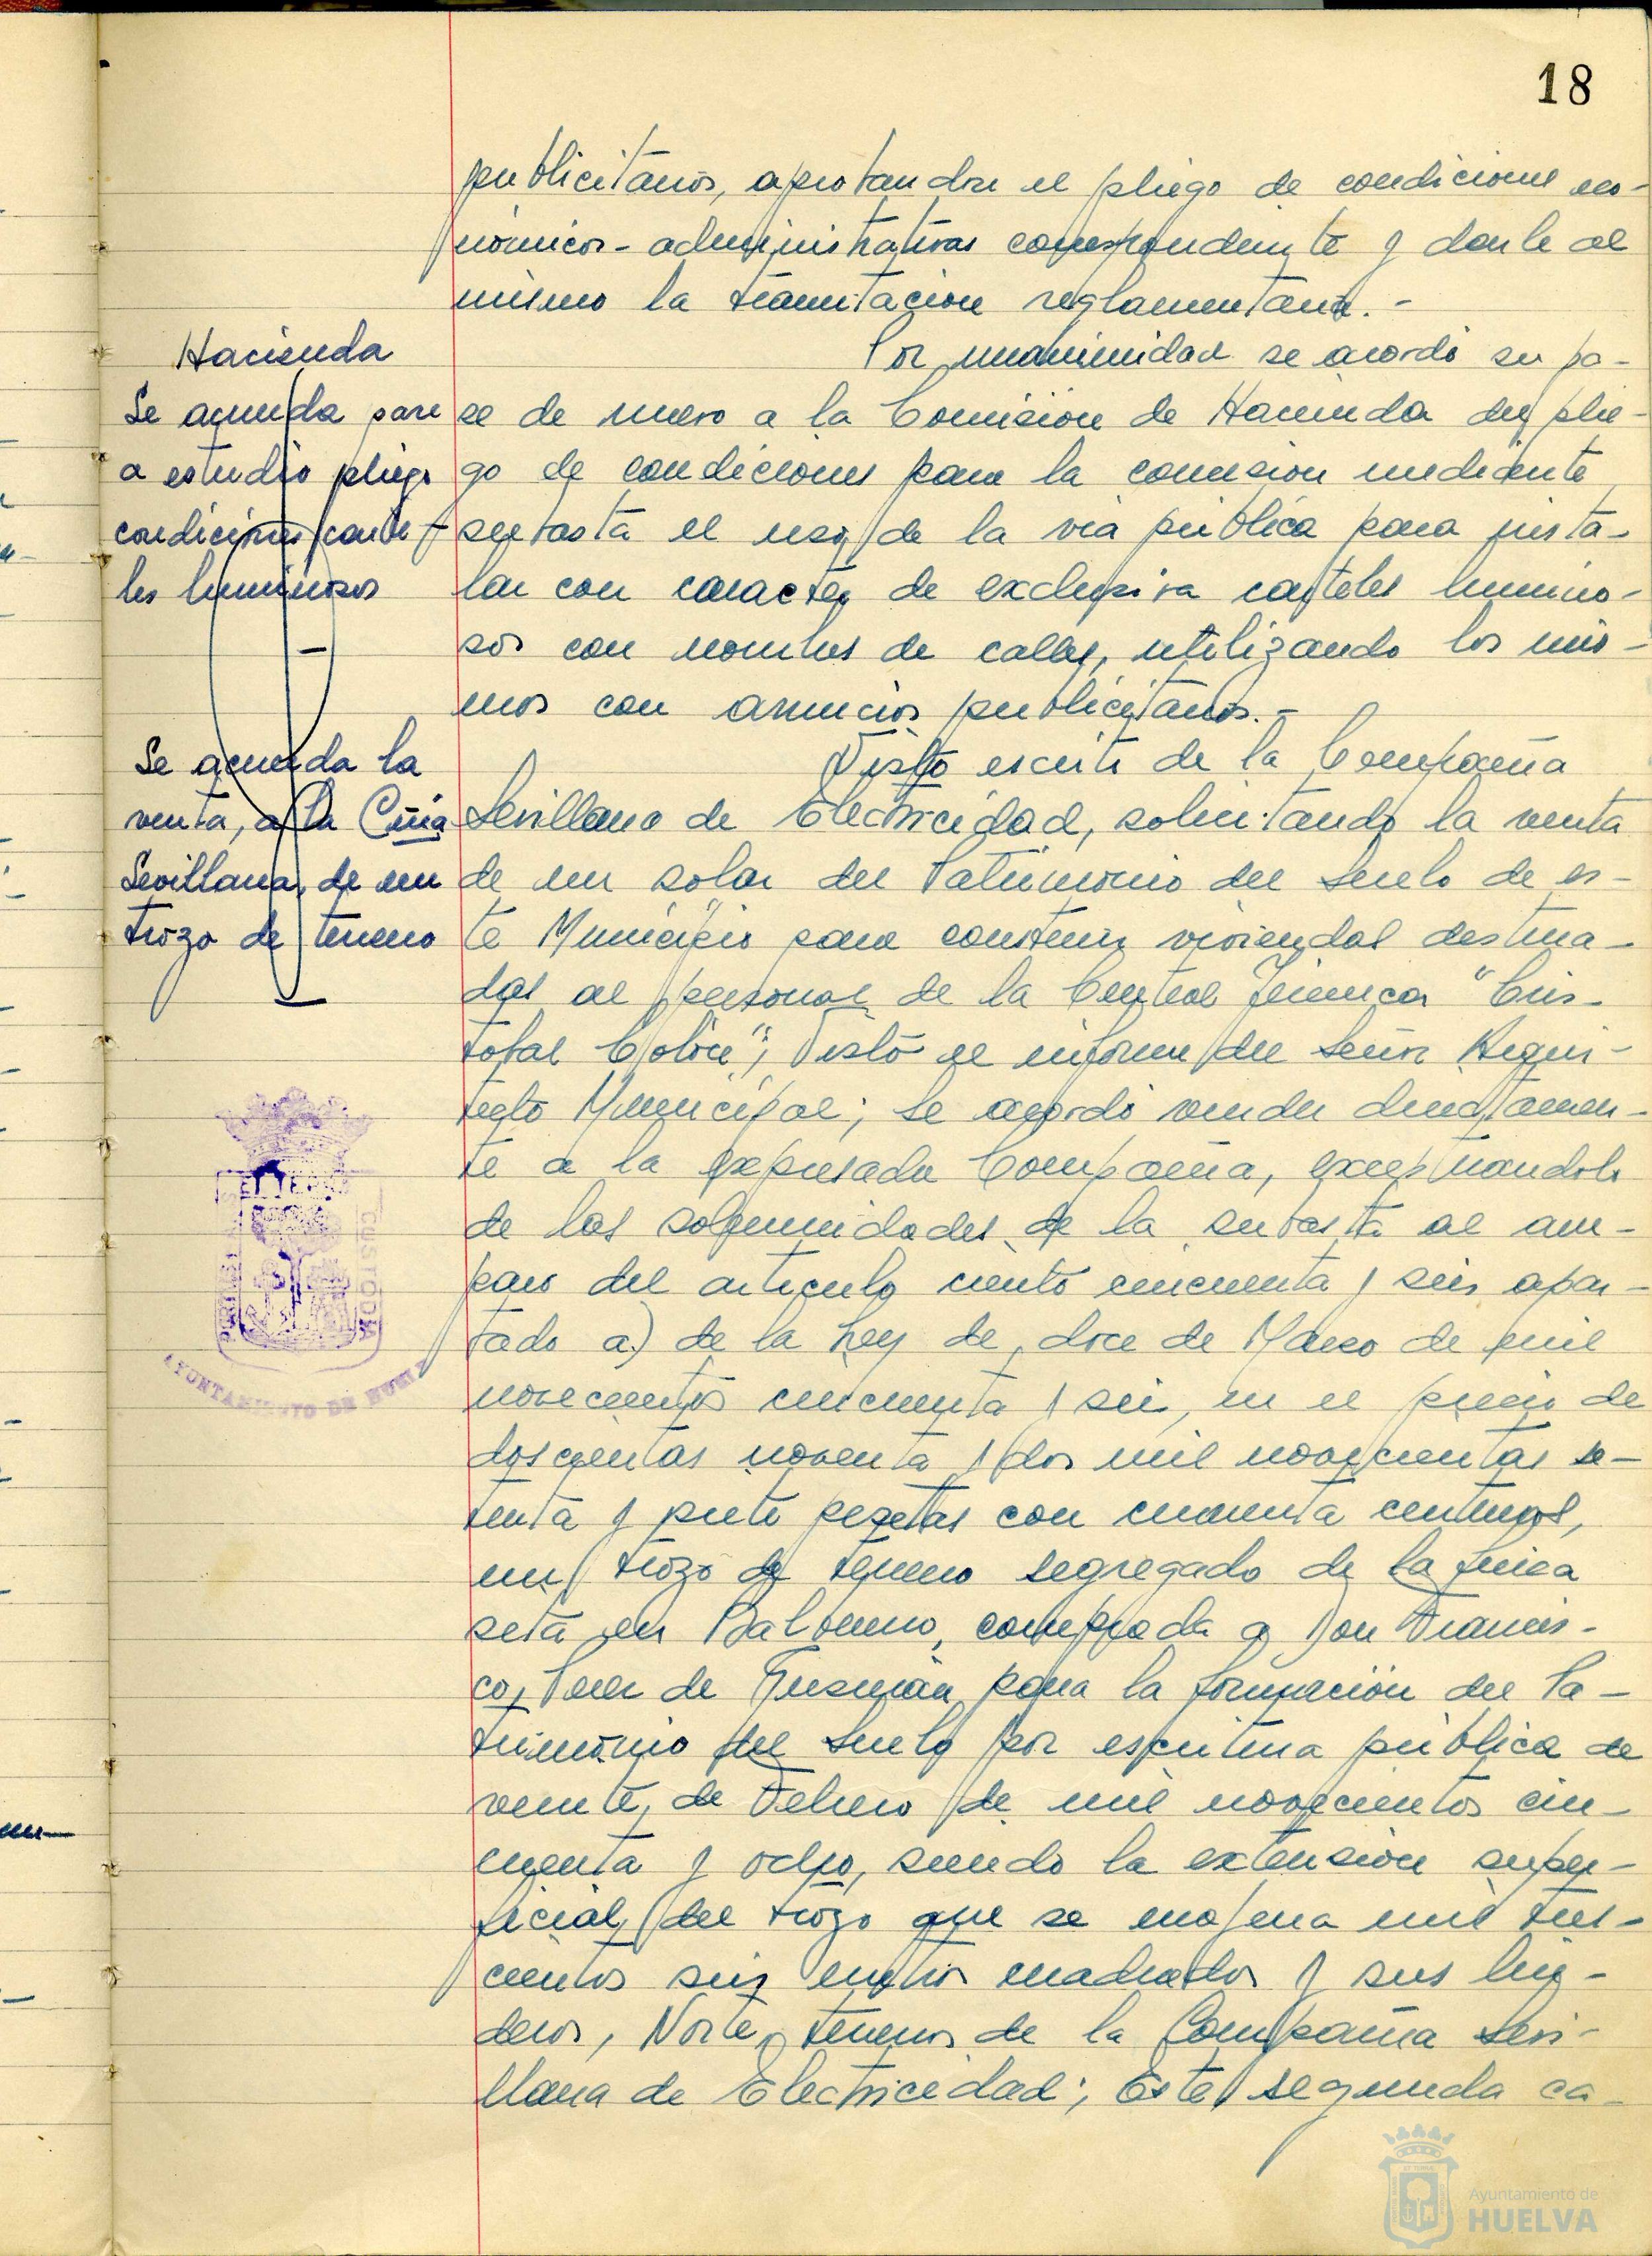 18
publicitarios, aprobandose el pliego de condiciones eco-
nómicos-administrativas correspondiente y darle al
mismo la tramitación reglamentaria.-
Hacienda
Se acuerda pase
a estudio pliego
condiciones carte-
les luminosos
Por unanimidad se acordó su pa-
se de nuevo a la Comisión de Hacienda del plie-
go de condiciones para la concesion mediante
subasta el uso de la via pública para insta-
lar con caracter de exclusiva carteles lumino-
sos con nombres de calles, utilizando los mis-
mos con anuncios publicitarios.-
Se acuerda la
venta, a la Cñia
Sevillana, de un
trozo de terreno
Visto escrito de la Compañia
Sevillana de Electricidad, solicitando la venta
de un solar del Patrimonio del Suelo de es-
te Municipio para construir viviendas destina-
das al personal de la Central Térmica "Cris-
tobal Colón"; Visto el informe del Señor Arqui-
tecto Municipal; se acordó vender directamen-
te a la expresada Compañia, exceptuandolo
de las solemnidades de la subasta al am-
paro del articulo ciento cincuenta y seis apar-
tado a) de la Ley de doce de Mayo de mil
novecientos cincuenta y seis, en el precio de
doscientas noventa y dos mil novecientas se-
tenta y siete pesetas con cincuenta centimos,
un trozo de terreno segregado de la finca
sita en Balbueno, comprada a Don Francis-
co, Perez de Guzmán para la formación del Pa-
trimonio del Suelo por escritura pública de
veinte de Febrero de mil novecientos cin-
cuenta y ocho, siendo la extension super-
ficial del trozo que se enajena mil tres-
cientos seis metros cuadrados y sus lin-
deros, Norte, terrenos de la Compañia Sevi-
llana de Electricidad; Este, segunda ca-
CUSTODIA
AYUNTAMIENTO DE HUELVA
Ayuntamiento de
HUELVA